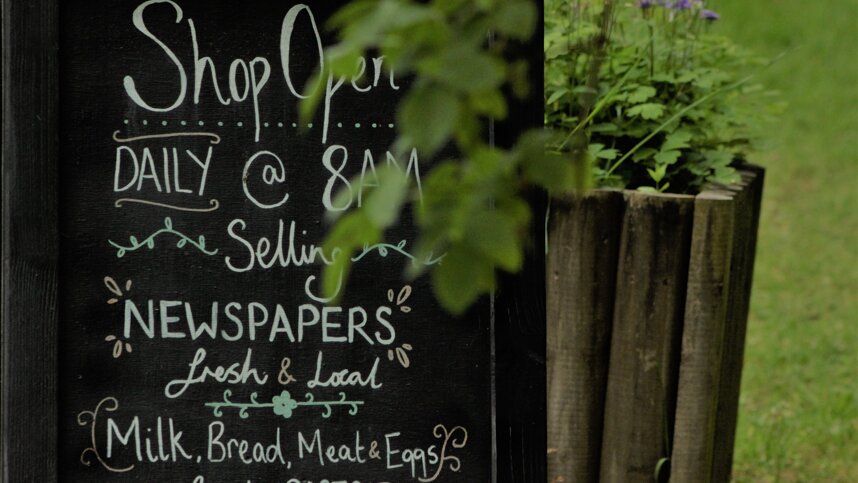 Shop Open
DAILY @ 8AM
Selling
NEWSPAPERS
fresh & Local
Milk, Bread, Meat & Eggs